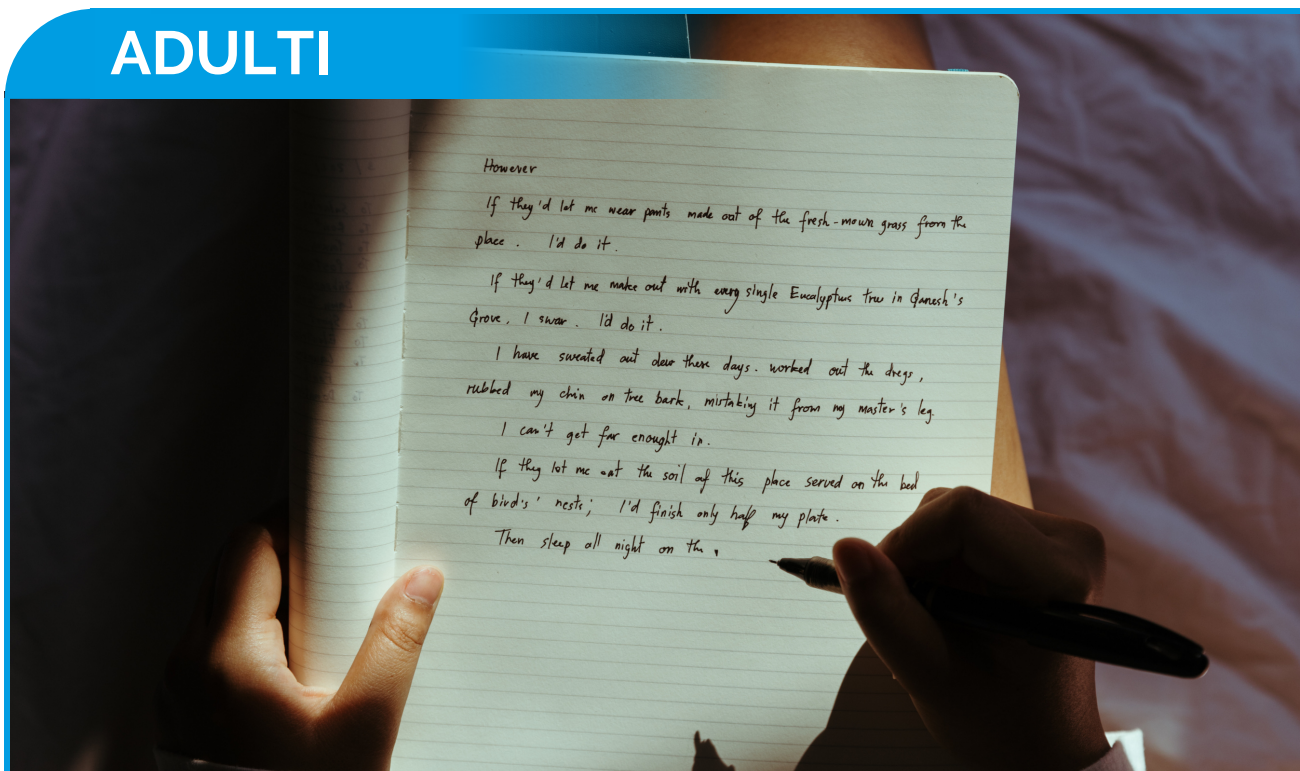 ADULTI
However
If they'd let me wear pants made out of the fresh-mown grass from the
place. I'd do it.
If they'd let me make out with every single Eucalyptus tree in Ganesh's
Grove, I swear. I'd do it.
I have sweated out dew these days. worked out the dregs,
rubbed my chin on tree bark, mistaking it from my master's leg.
I can't get far enought in.
If they let me eat the soil of this place served on the bed
of bird's' nests; I'd finish only half my plate.
Then sleep all night on the